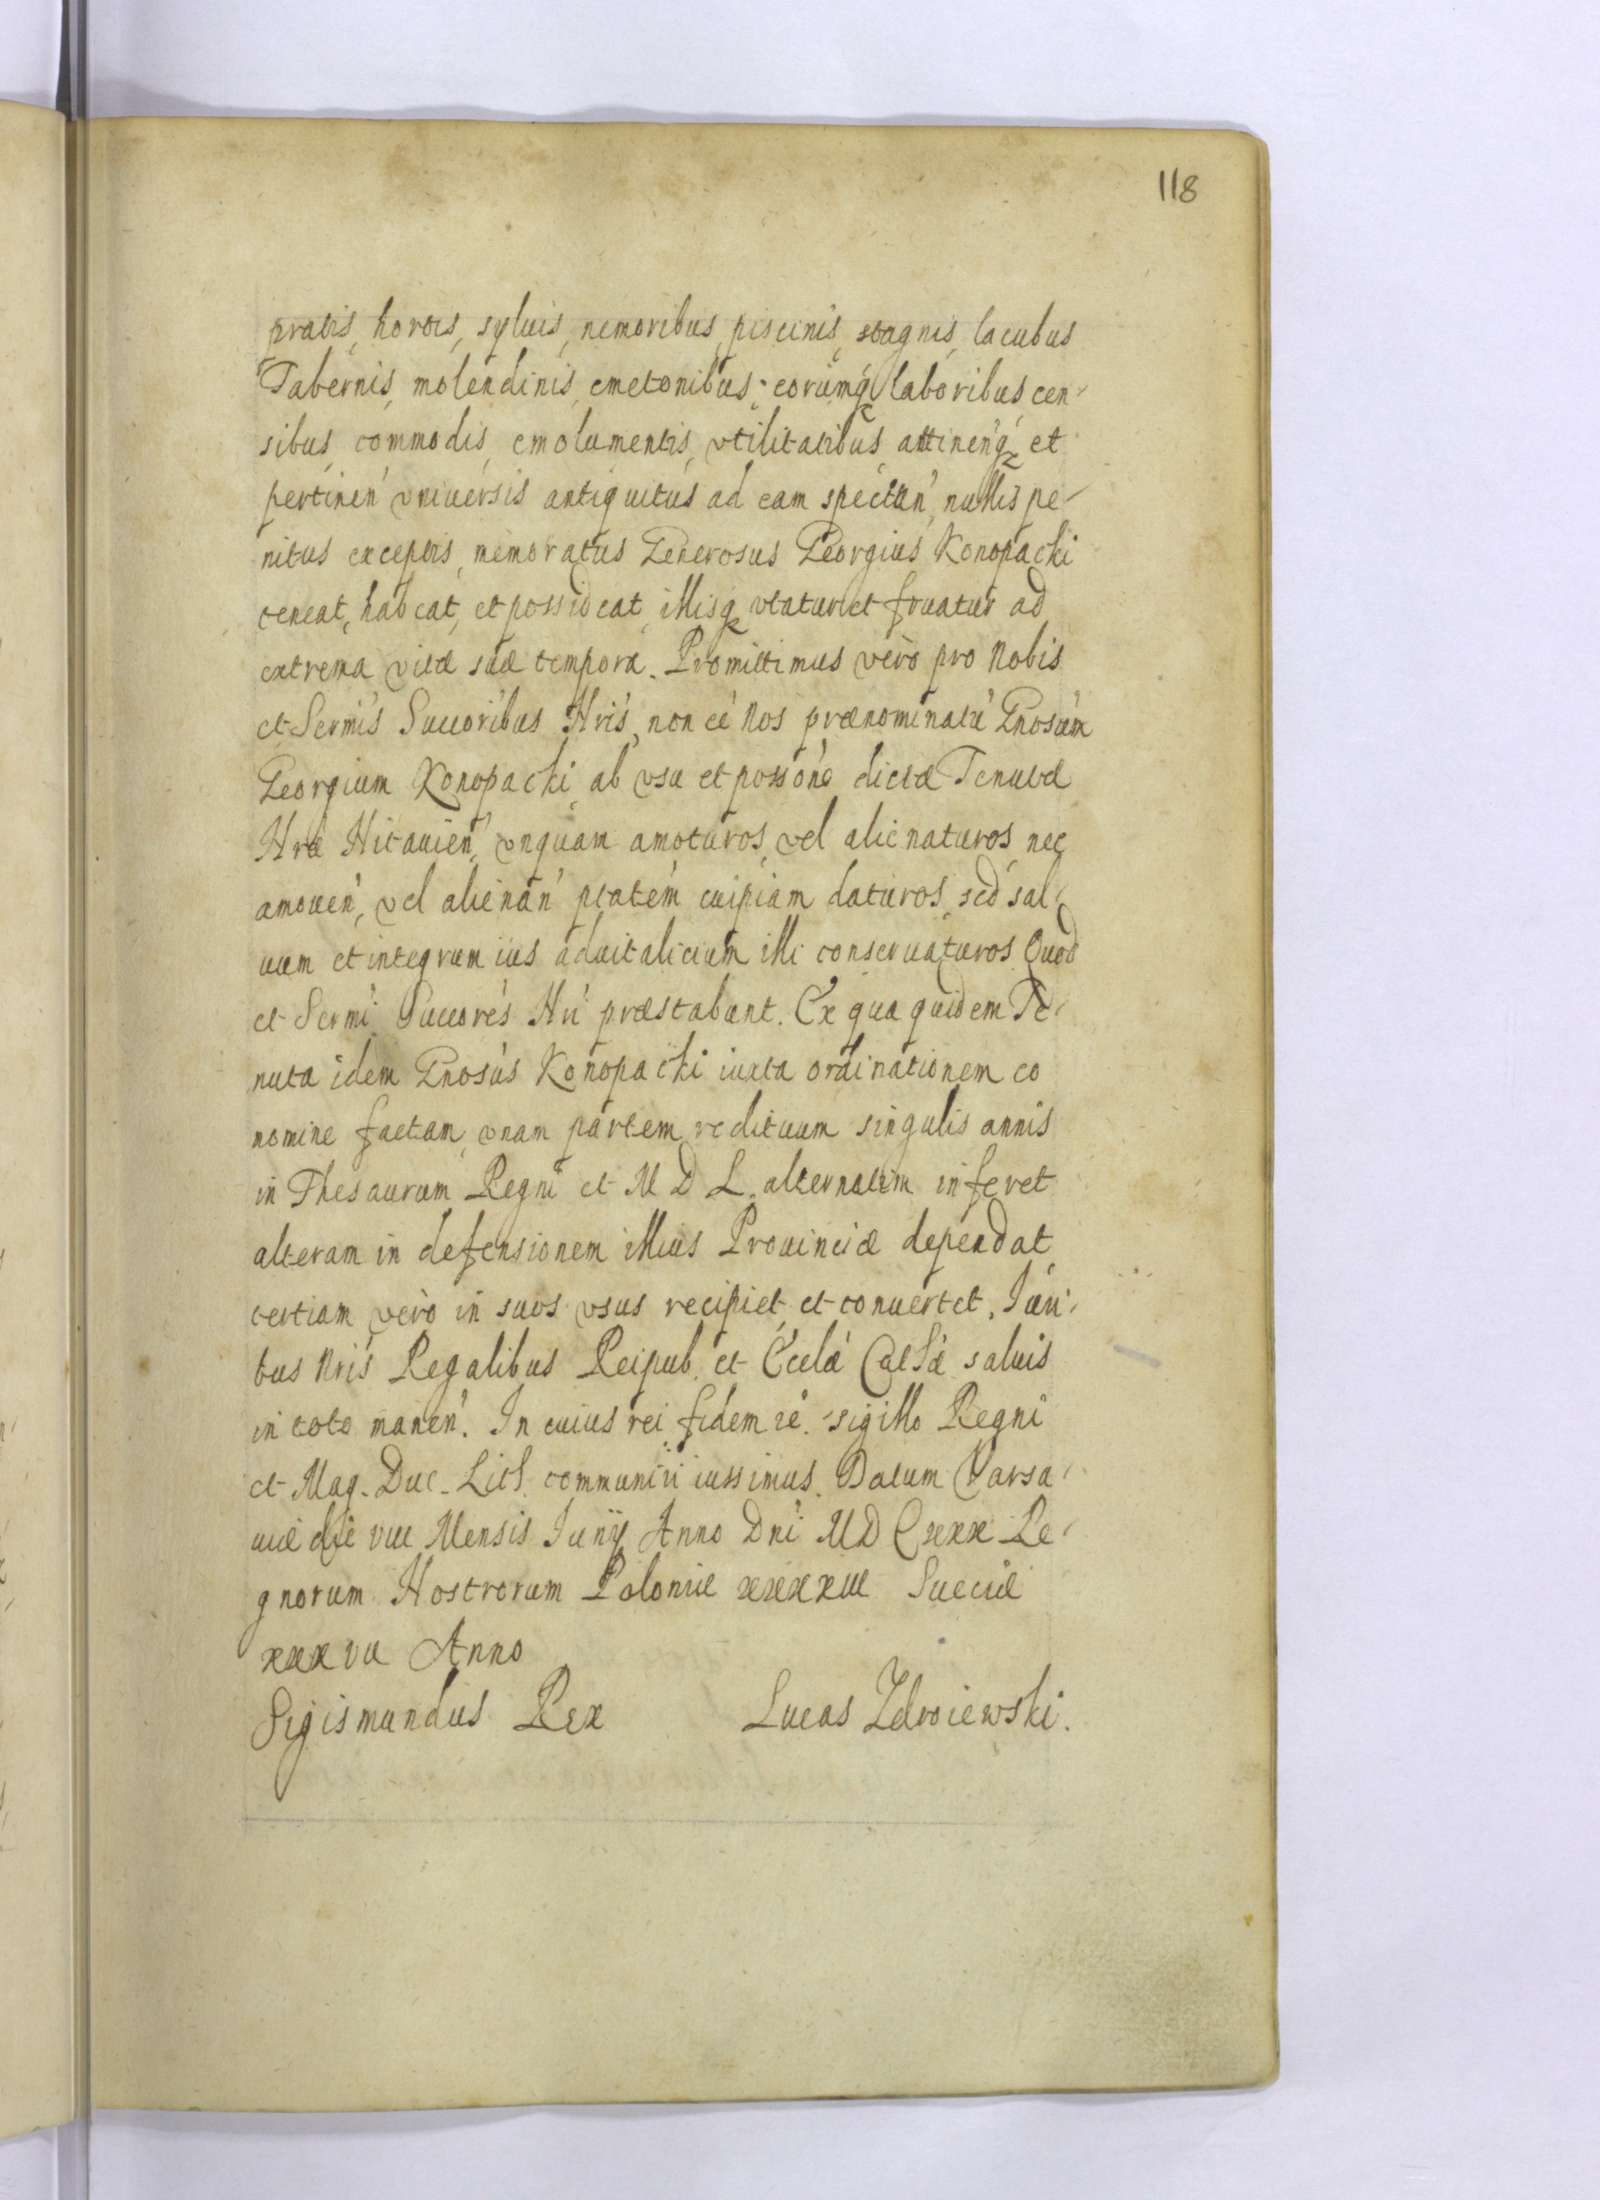 118
pratis, hortis, syluis, nemoribus, piscinis, stagnis, lacubus
Tabernis, molendinis, cmetonibus, eorumq laboribus, cen-
sibus, commodis, emolumentis, vtilitatibus, attinen'q et
pertinen' vniuersis antiquitus ad eam spectan', nullis pe-
nitus exceptis, memoratus Generosus Georgius Konopacki
teneat, habeat, et possideat, illisq vtatur et fruatur ad
extrema vitæ suæ tempora. Promittimus verò pro Nobis
et Sermis Succoribus Nris, non eē Nos prænominatū Gnosum
Georgium Konopacki, ab vsu et possone dictæ Tenutæ
Nræ Hitauien', vnquam amoturos, vel alienaturos, nec
amouen', vel alienan' ptatem cuipiam daturos, sed sal-
uum et integrum ius aduitalicium illi conseruaturos. Quod
et Sermi Succores Nri præstabunt. Ex qua quidem Te-
nuta idem Gnosus Konopacki iuxta ordinationem eo
nomine factam, vnam partem redituum singulis annis
in Thesaurum Regni et M D L. alternatim inferet
alteram in defensionem illius Prouinciæ dependat
tertiam verò in suos vsus recipiet, et conuertet. Iuri-
bus Nris Regalibus Reipub. et Ecclæ Cathæ saluis
in toto manen'. In cuius rei fidem sigillo Regni
et Mag. Duc. Lith. communiri iussimus. Datum Varsa-
uiæ die VIII Mensis Iunij Anno Dni MD CXXX Re-
gnorum Nostrorum Poloniæ XXXXIII Sueciæ
XXXVII Anno
Sigismundus Rex Lucas Zdroiewski.